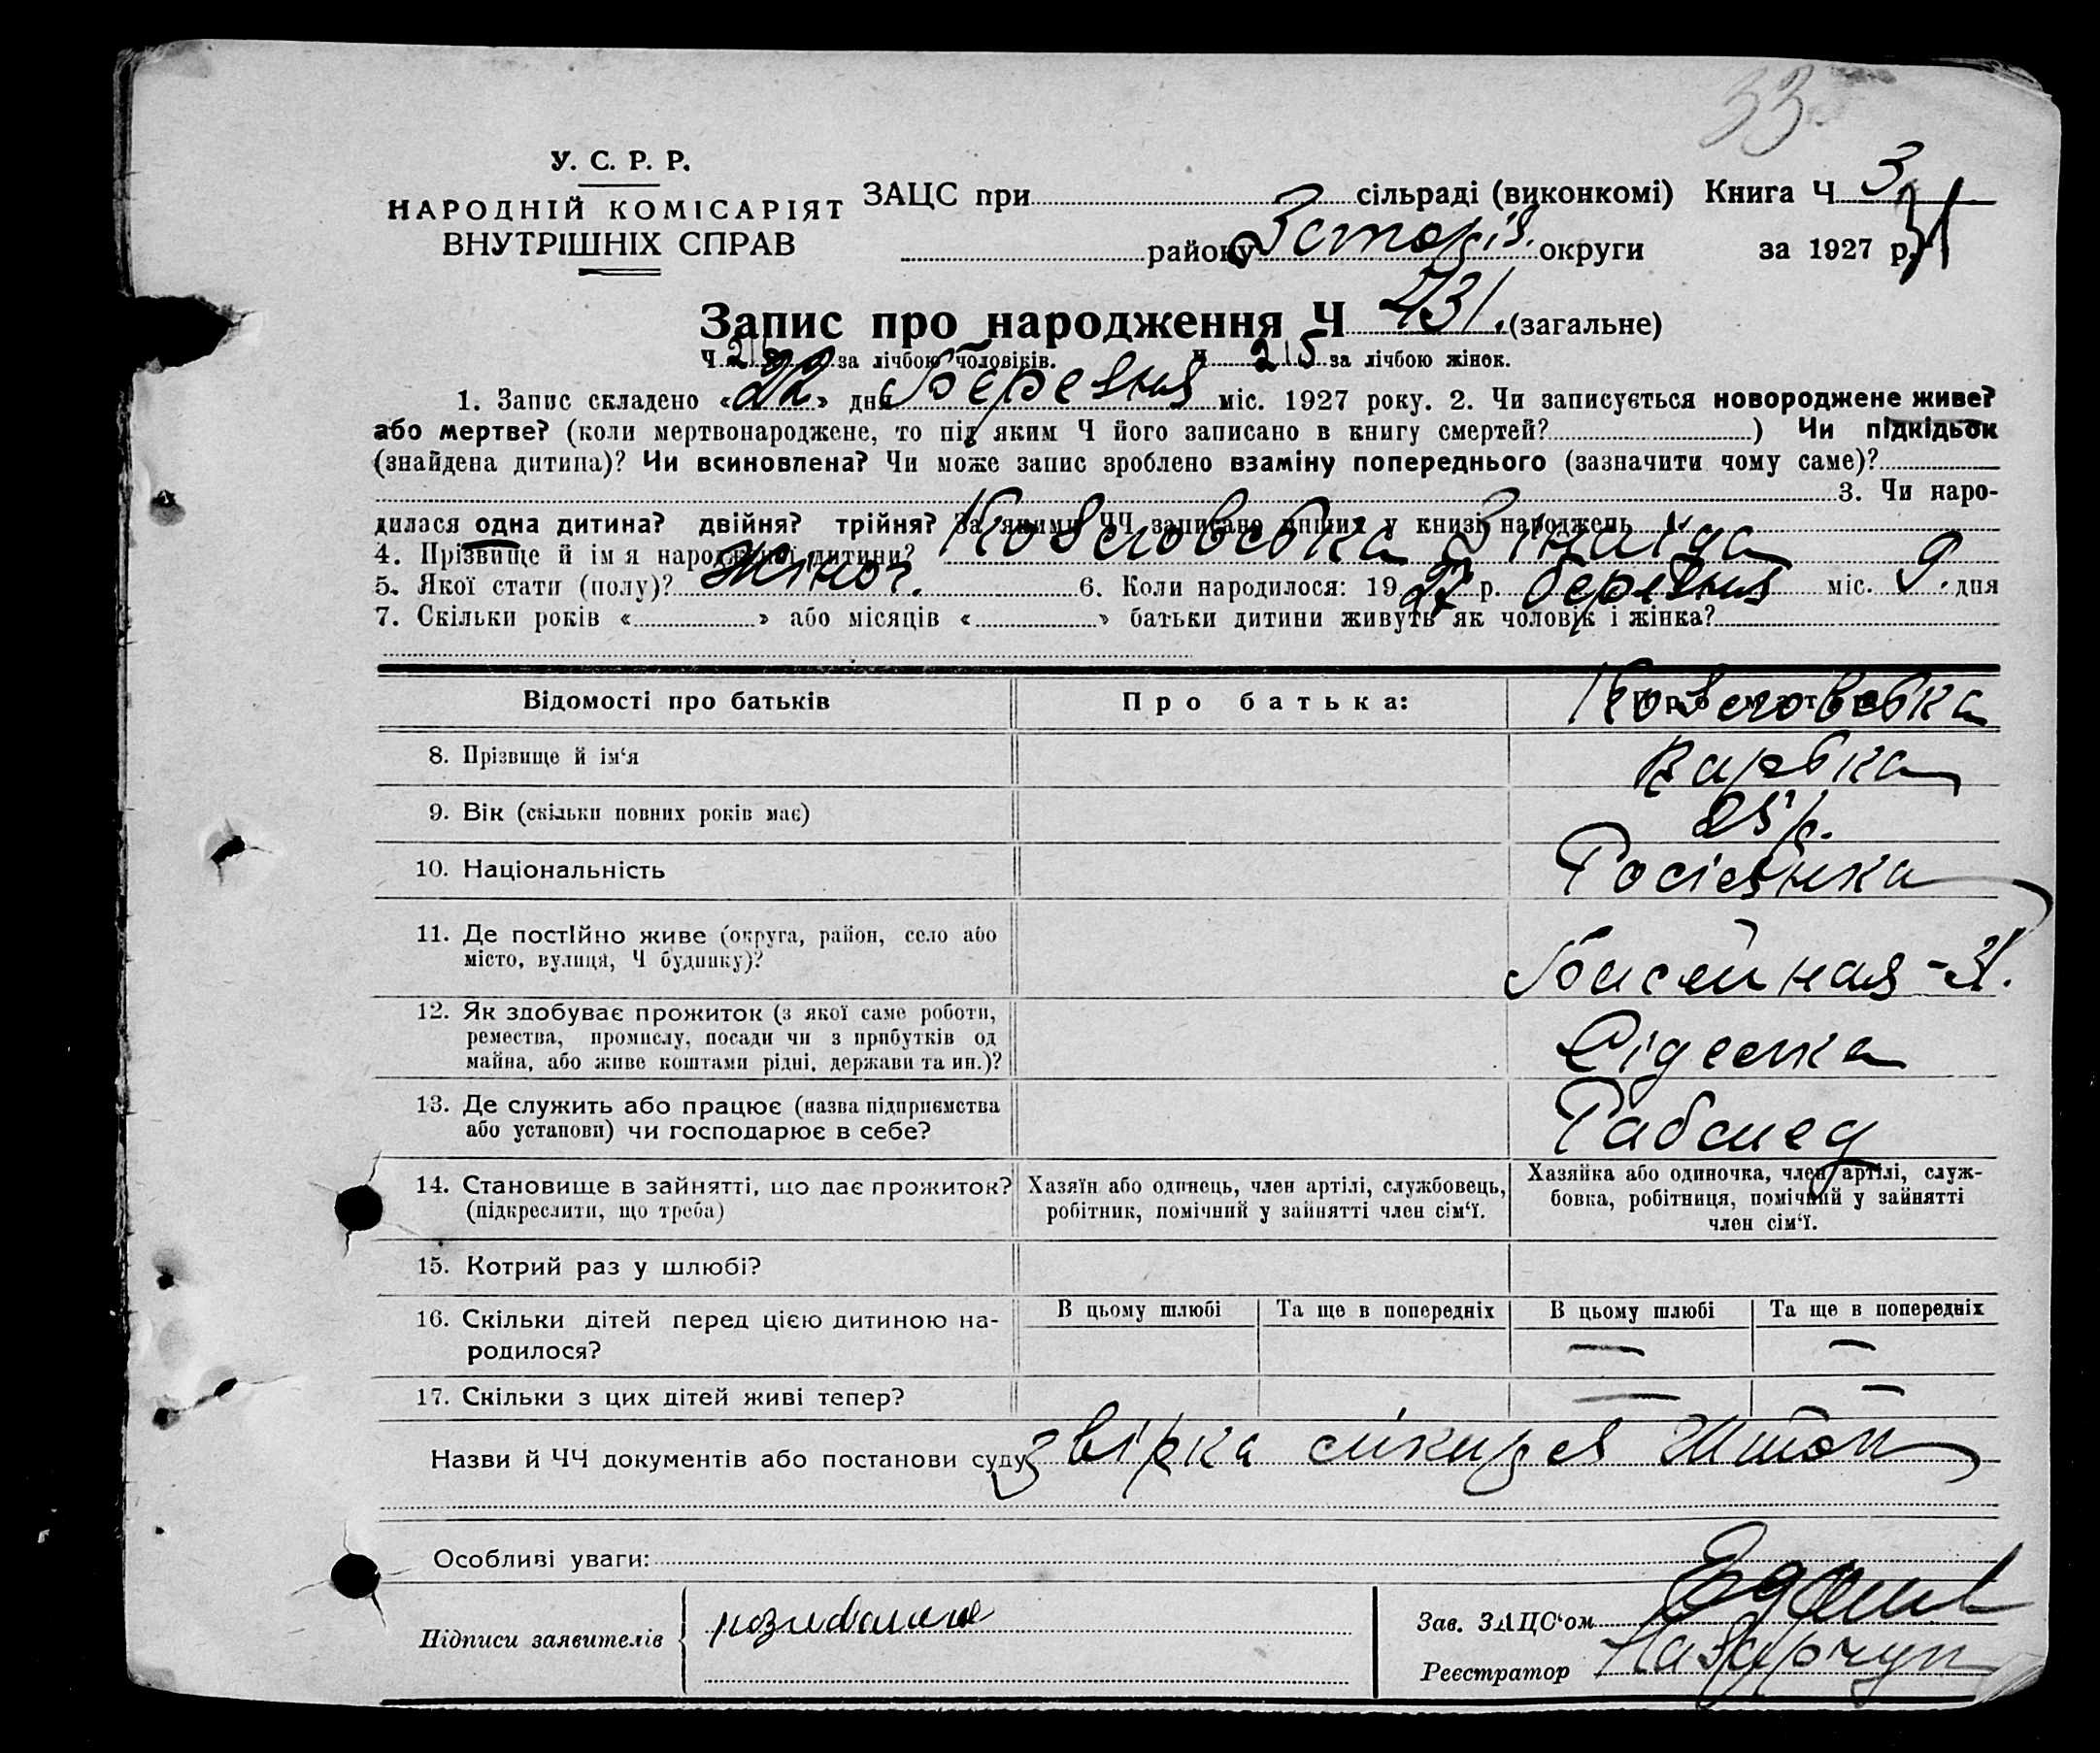 33
У. С. Р. Р.
НАРОДНІЙ КОМІСАРІЯТ
ВНУТРІШНІХ СПРАВ
ЗАЦС при сільраді (виконкомі) Книга Ч 3
району округи за 1927 р.
Запис про народження Ч 431. (загальне)
Ч за лічбою чоловіків. Ч 215 за лічбою жінок.
1. Запис складено «22» дня Березня міс. 1927 року. 2. Чи записується новороджене живе?
або мертве? (коли мертвонароджене, то під яким Ч його записано в книгу смертей? ) Чи підкідьок
(знайдена дитина)? Чи всиновлена? Чи може запис зроблено взаміну попереднього (зазначити чому саме)?
3. Чи наро-
дилася одна дитина? двійня? трійня? За якими ЧЧ записано инших у книзі народжень
4. Прізвище й ім я народженої дитини? Зінаїда
5. Якої стати (полу)? жіноч. 6. Коли народилося: 1927 р. березня міс. 9. дня
7. Скільки років « » або місяців « » батьки дитини живуть як чоловік і жінка?
Відомості про батьків Про батька:
8. Прізвище й ім‘я
9. Вік (скільки повних років має) 25 р.
10. Національність Росіянка
11. Де постІйно живе (округа, район, село або
місто, вулиця, Ч будинку)?
12. Як здобуває прожиток (з якої саме роботи,
ремества, промислу, посади чи з прибутків од
майна, або живе коштами рідні, держави та ин.)?
13. Де служить або працює (назва підприємства
або установи) чи господарює в себе?
14. Становище в зайнятті, що дає прожиток?
(підкреслити, що треба)
Хазяїн або одинець, член артілі, службовець,
робітник, помічний у зайнятті член сім‘ї.
Хазяйка або одиночка, член артілі, служ-
бовка, робітниця, помічний у зайнятті
член сім‘ї.
15. Котрий раз у шлюбі?
16. Скільки дітей перед цією дитиною на-
родилося?
В цьому шлюбі Та ще в попередніх В цьому шлюбі Та ще в попередніх
— —
17. Скільки з цих дітей живі тепер? — —
Назви й ЧЧ документів або постанови суду
Особливі уваги:
Підписи заявителів
Зав. ЗАЦС‘ом
Реєстратор